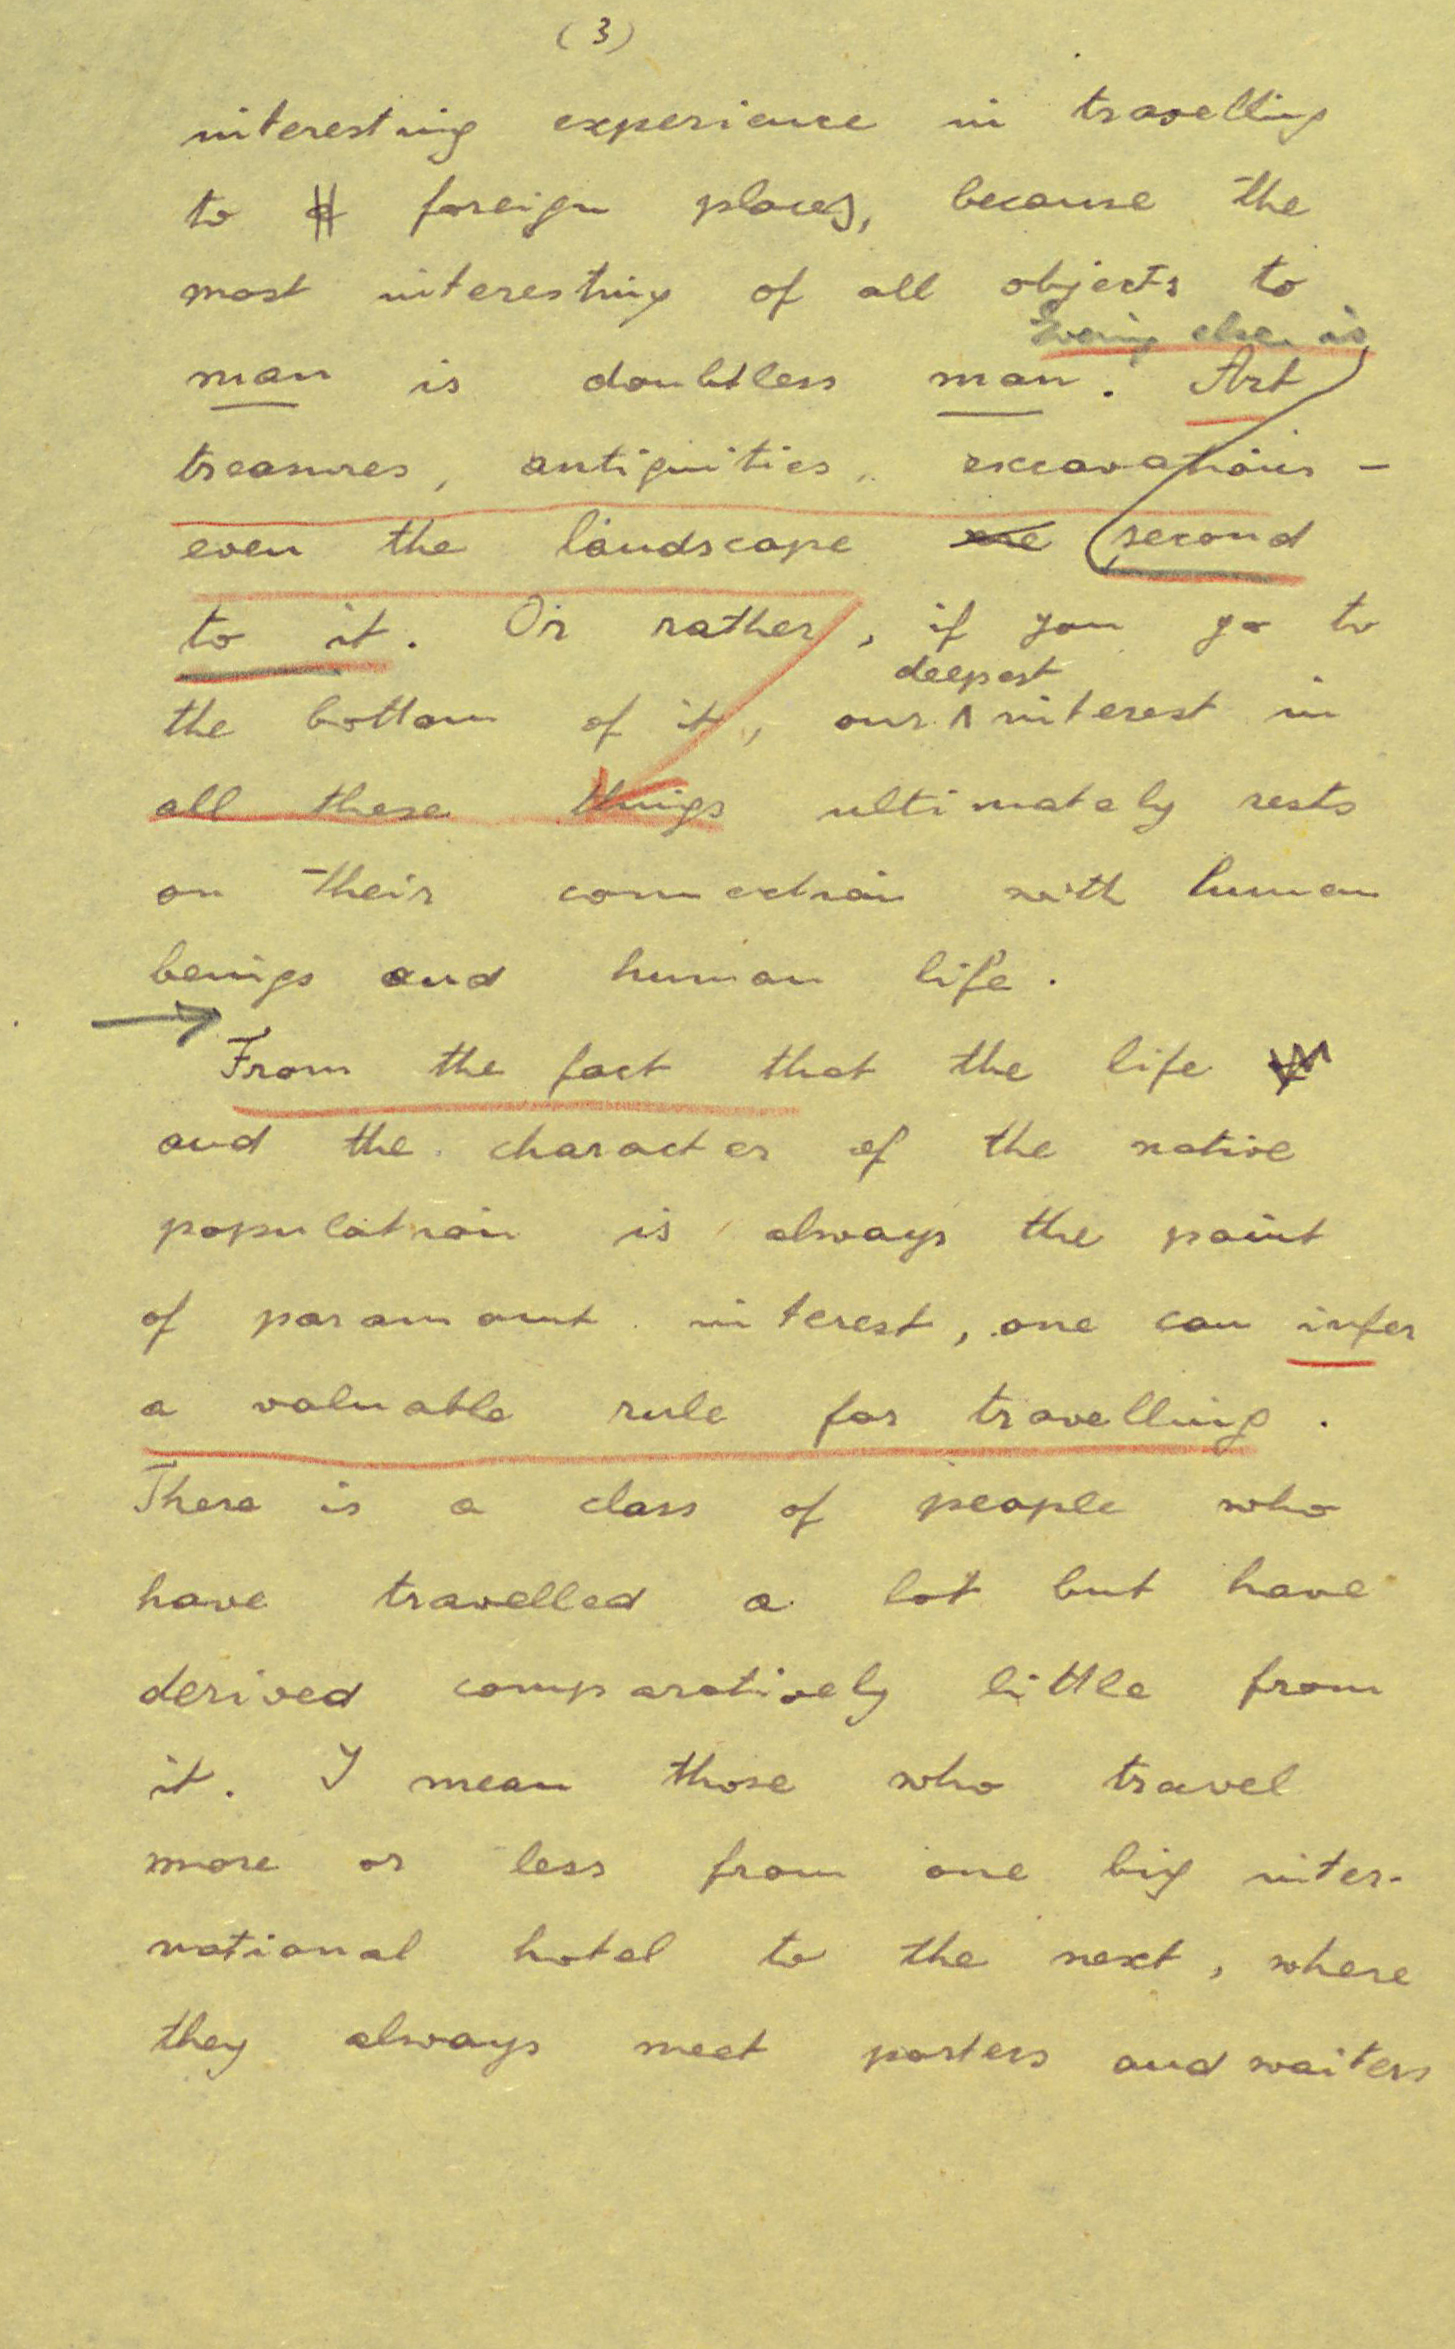 (3)
interesting experience in travelling
to foreign places, because the
most interesting of all objects to
else is
man is doubtless man. Art
treasures, antiquities, excavations -
even the landscape are second
to it. Or rather, if you go to
deepest
the bottom of it, our ∧ interest in
all these things ultimately rests
on their connection with human
beings and human life.
→
From the fact that the life
and the character of the native
population is always the point
of paramount interest, one can infer
a valuable rule for travelling.
There is a class of people who
have travelled a lot but have
derived comparatively little from
it. I mean those who travel
more or less from one big inter-
national hotel to the next, where
they always meet porters and waiters